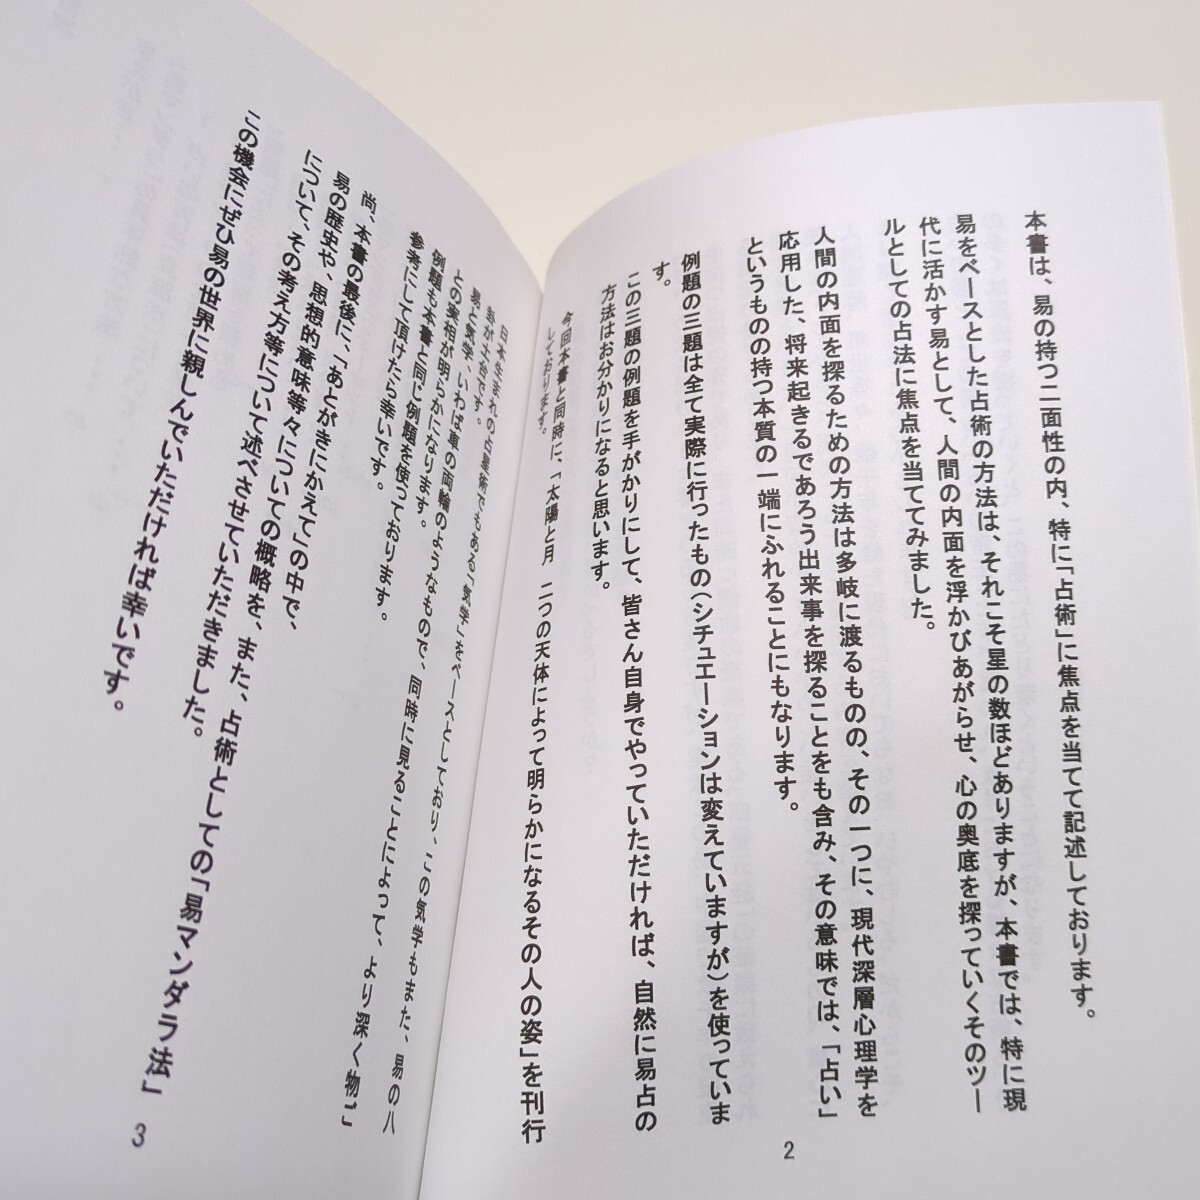 本書は、易の持つ二面性の内、特に「占術」に焦点を当てて記述しております。
易をベースとした占術の方法は、それこそ星の数ほどありますが、本書では、特に現
代に活かす易として、人間の内面を浮かびあがらせ、心の奥底を探っていくそのツー
ルとしての占法に焦点を当ててみました。
人間の内面を探るための方法は多岐に渡るものの、その一つに、現代深層心理学を
応用した、将来起きるであろう出来事を探ることをも含み、その意味では、「占い」
というものの持つ本質の一端にふれることにもなります。
例題の三題は全て実際に行ったもの(シチュエーションは変えていますが)を使っていま
す。
この三題の例題を手がかりにして、皆さん自身でやっていただければ、自然に易占の
方法はお分かりになると思います。
今回本書と同時に、「太陽と月 二つの天体によって明らかになるその人の姿」を刊行
しております。
2
日本生まれの占星術でもある「気学」をベースとしており、この気学もまた、易の八
卦が土台です。
易と気学、いわば車の両輪のようなもので、同時に見ることによって、より深く物ご
との実相が明らかになります。
例題も本書と同じ例題を使っております。
参考にして頂けたら幸いです。
尚、本書の最後に、「あとがきにかえて」の中で、
易の歴史や、思想的意味等々についての概略を、また、占術としての「易マンダラ法」
について、その考え方等について述べさせていただきました。
この機会にぜひ易の世界に親しんでいただければ幸いです。
3